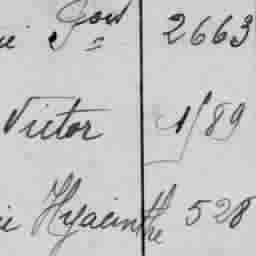 ie 2663
Victor 1189
ie Hyacinthe 528